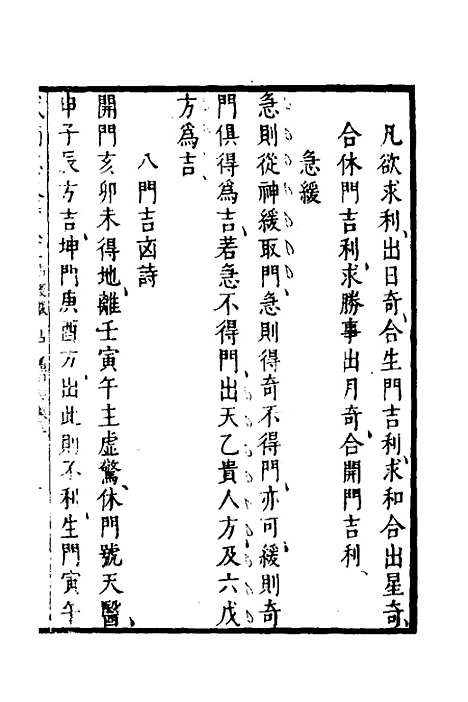 凡欲求利出日奇合生門吉利求和合出星奇
合休門吉利求勝事出月奇合開門吉利
急緩
急則從神緩取門急則得奇不得門亦可緩則奇
門俱得爲吉若急不得門出天乙貴人方及六戊
方爲吉
八門吉凶詩
開門亥卯未得地離壬寅午主虛驚休門號天醫
申子辰方吉坤門庚酉方出此則不利生門寅午